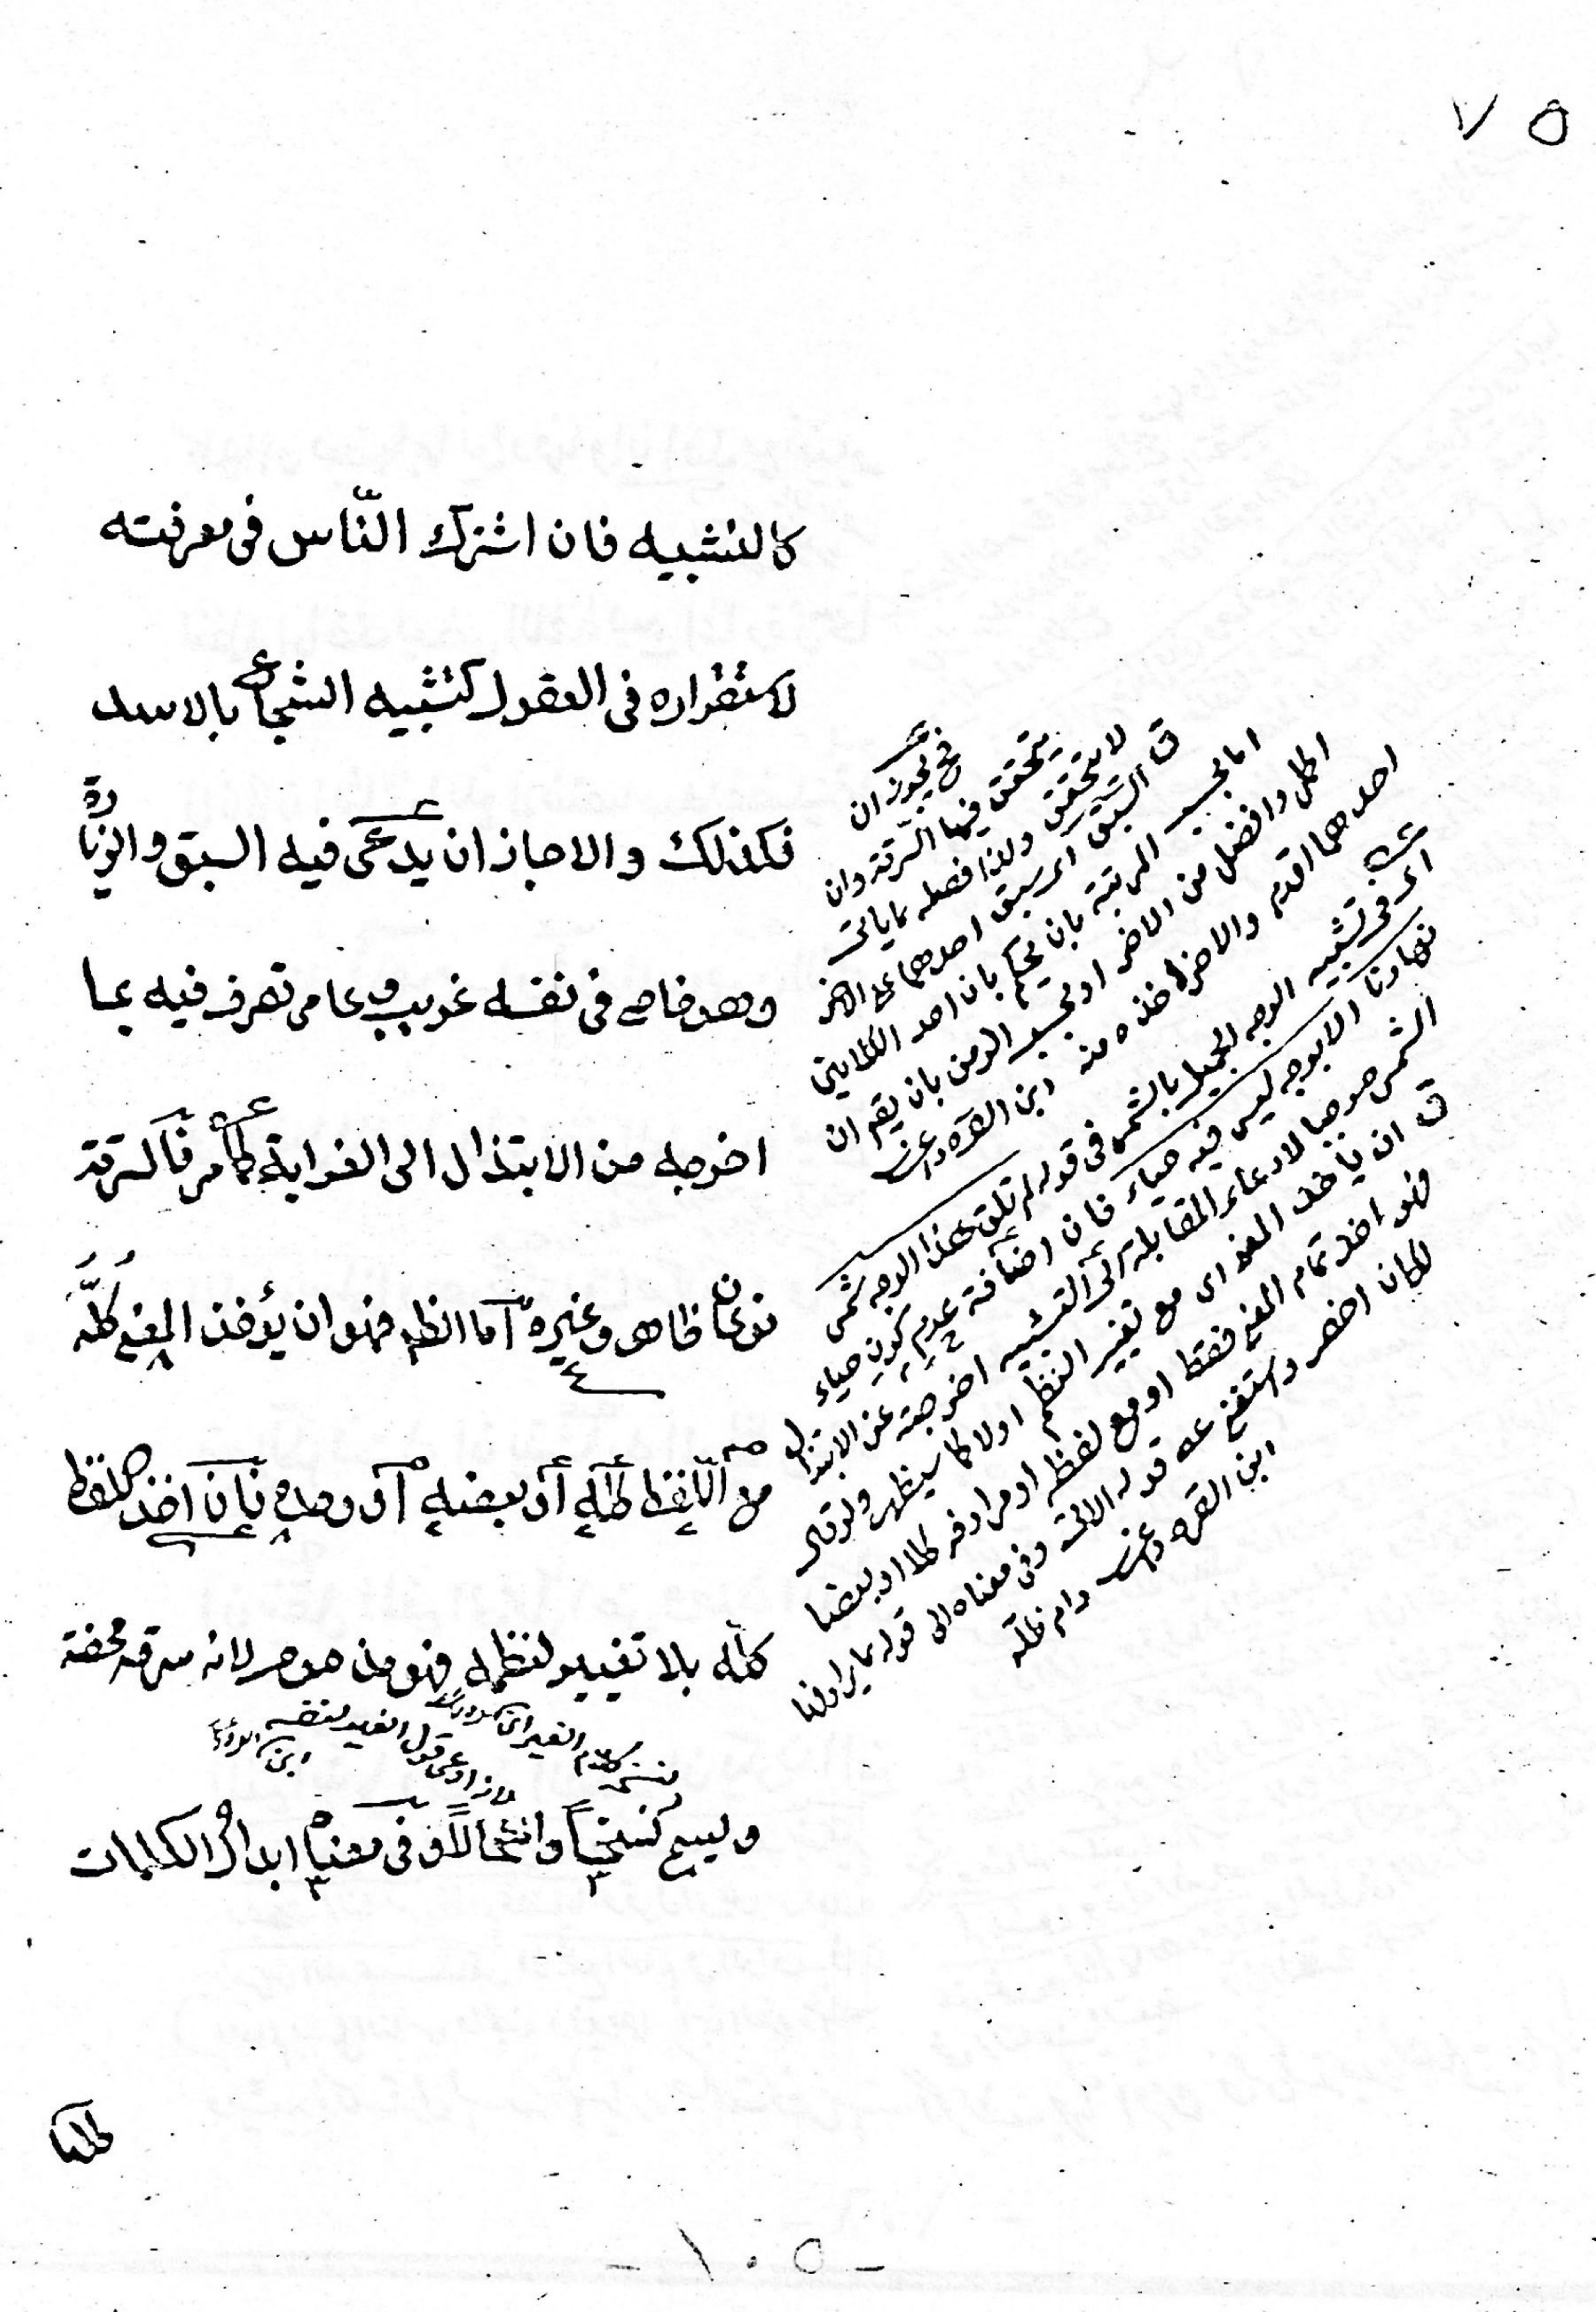 ٧٥
كالتشبيه فان اشترك النّاس فى معرفته
لاستقراره فى العقول كتشبيه الشجاع بالاسد
فكذلك والا جاز ان يدعى فيه السبق والزيادة
وهو خاصى فى نفسه غريب وعامى تصرف فيه بما
اخرجه من الابتذال الى الغرابة كما مر فالسرقة
نوعان ظاهر وغيره اما الظاهر فهو ان يؤخذ المعنى كلّه
مع اللّفظ كله أو بعضه أو وحده فان اخذ اللفظ
كلّه بلا تغيير لنظمه فهو مذموم لانه سرقة محضة
ويسمى نسخاً وانتحالاً وفى معناه ابدال الكلمات
فح يجوز ان
يتحقق فيها السرقة وان
لا يتحقق ولذا فصله بما ياتى
ق السبق اى سبق احدهما على الاخر
اما بحسب المرتبة بان يحكم بان احد الكلامين
اكمل وافضل من الاخر او بحسب الزمن بان يقم ان
احدهما اقدم والاخر اخذه منه ابن القره داغى
اى فى تشبيه الوجه الجميل بالشمس فى قوله لم تلق هذا الوجه شمس
نهارنا الا بوجه ليس فيه حياء فان اضافة عدم كون حياء
الشمس موجبا لادعاء المقابلة الى التشبيه اخرجته عن الابتذال
ق ان يأخذ المعنى اى مع تغيير النظم اولا كما سيظهر ولو قال
فهو اخذ تمام المعنى فقط او مع لفظه او مرادفه كلا او بعضا
لكان اخصر واستغنى عن قوله الاتى وفى معناه الى قوله بما يرادفها
ابن القره داغى دام ظلّه
كلها
- ١٠٥ -